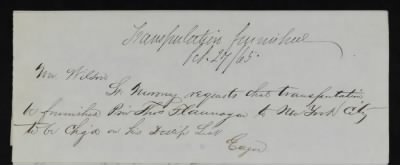 Transportation furnished
Oct. 27/65
Wm Wilson
Dr Murray requests that transportation
be furnished Priv Thos Flannagan to New York City
to be Chg'd on his Desc List